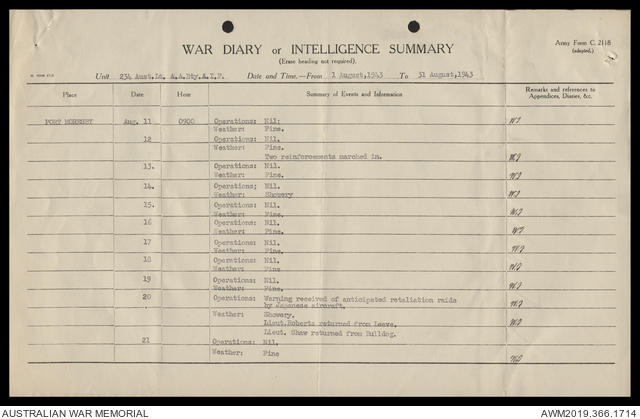 Army Form C. 2118
(adapted.)
WAR DIARY or INTELLIGENCE SUMMARY
(Erase heading not required).
Unit 234 Aust.Lt. A.A.Bty.A.I.F. Date and Time.—From 1 August,1943 To 31 August,1943
Place Date Hour Summary of Events and Information Remarks and references to Appendices, Diaries, &c.
PORT MORESBEY Aug. 11 0900 Operations: Nil:
Weather: Fine.
12 Operations: Nil.
Weather: Fine.
Two reinforcements marched in.
13. Operations: Nil.
Weather: Fine.
14. Operations; Nil.
Weather: Showery
15. Operations: Nil.
Weather: Fine.
16 Operations: Nil.
Weather: Fine.
17 Operations: Nil.
Weather: Fine.
18 Operations: Nil.
Weather: Fine
19 Operations: Nil.
Weather: Fine.
20 Operations: Warning received of anticipated retaliation raids
by Japanese aircraft.
Weather: Showery.
Lieut.Roberts returned from Leave.
Lieut. Shaw returned from Bulldog.
21 Operations: Nil.
Weather: Fine
AUSTRALIAN WAR MEMORIAL AWM2019.366.1714